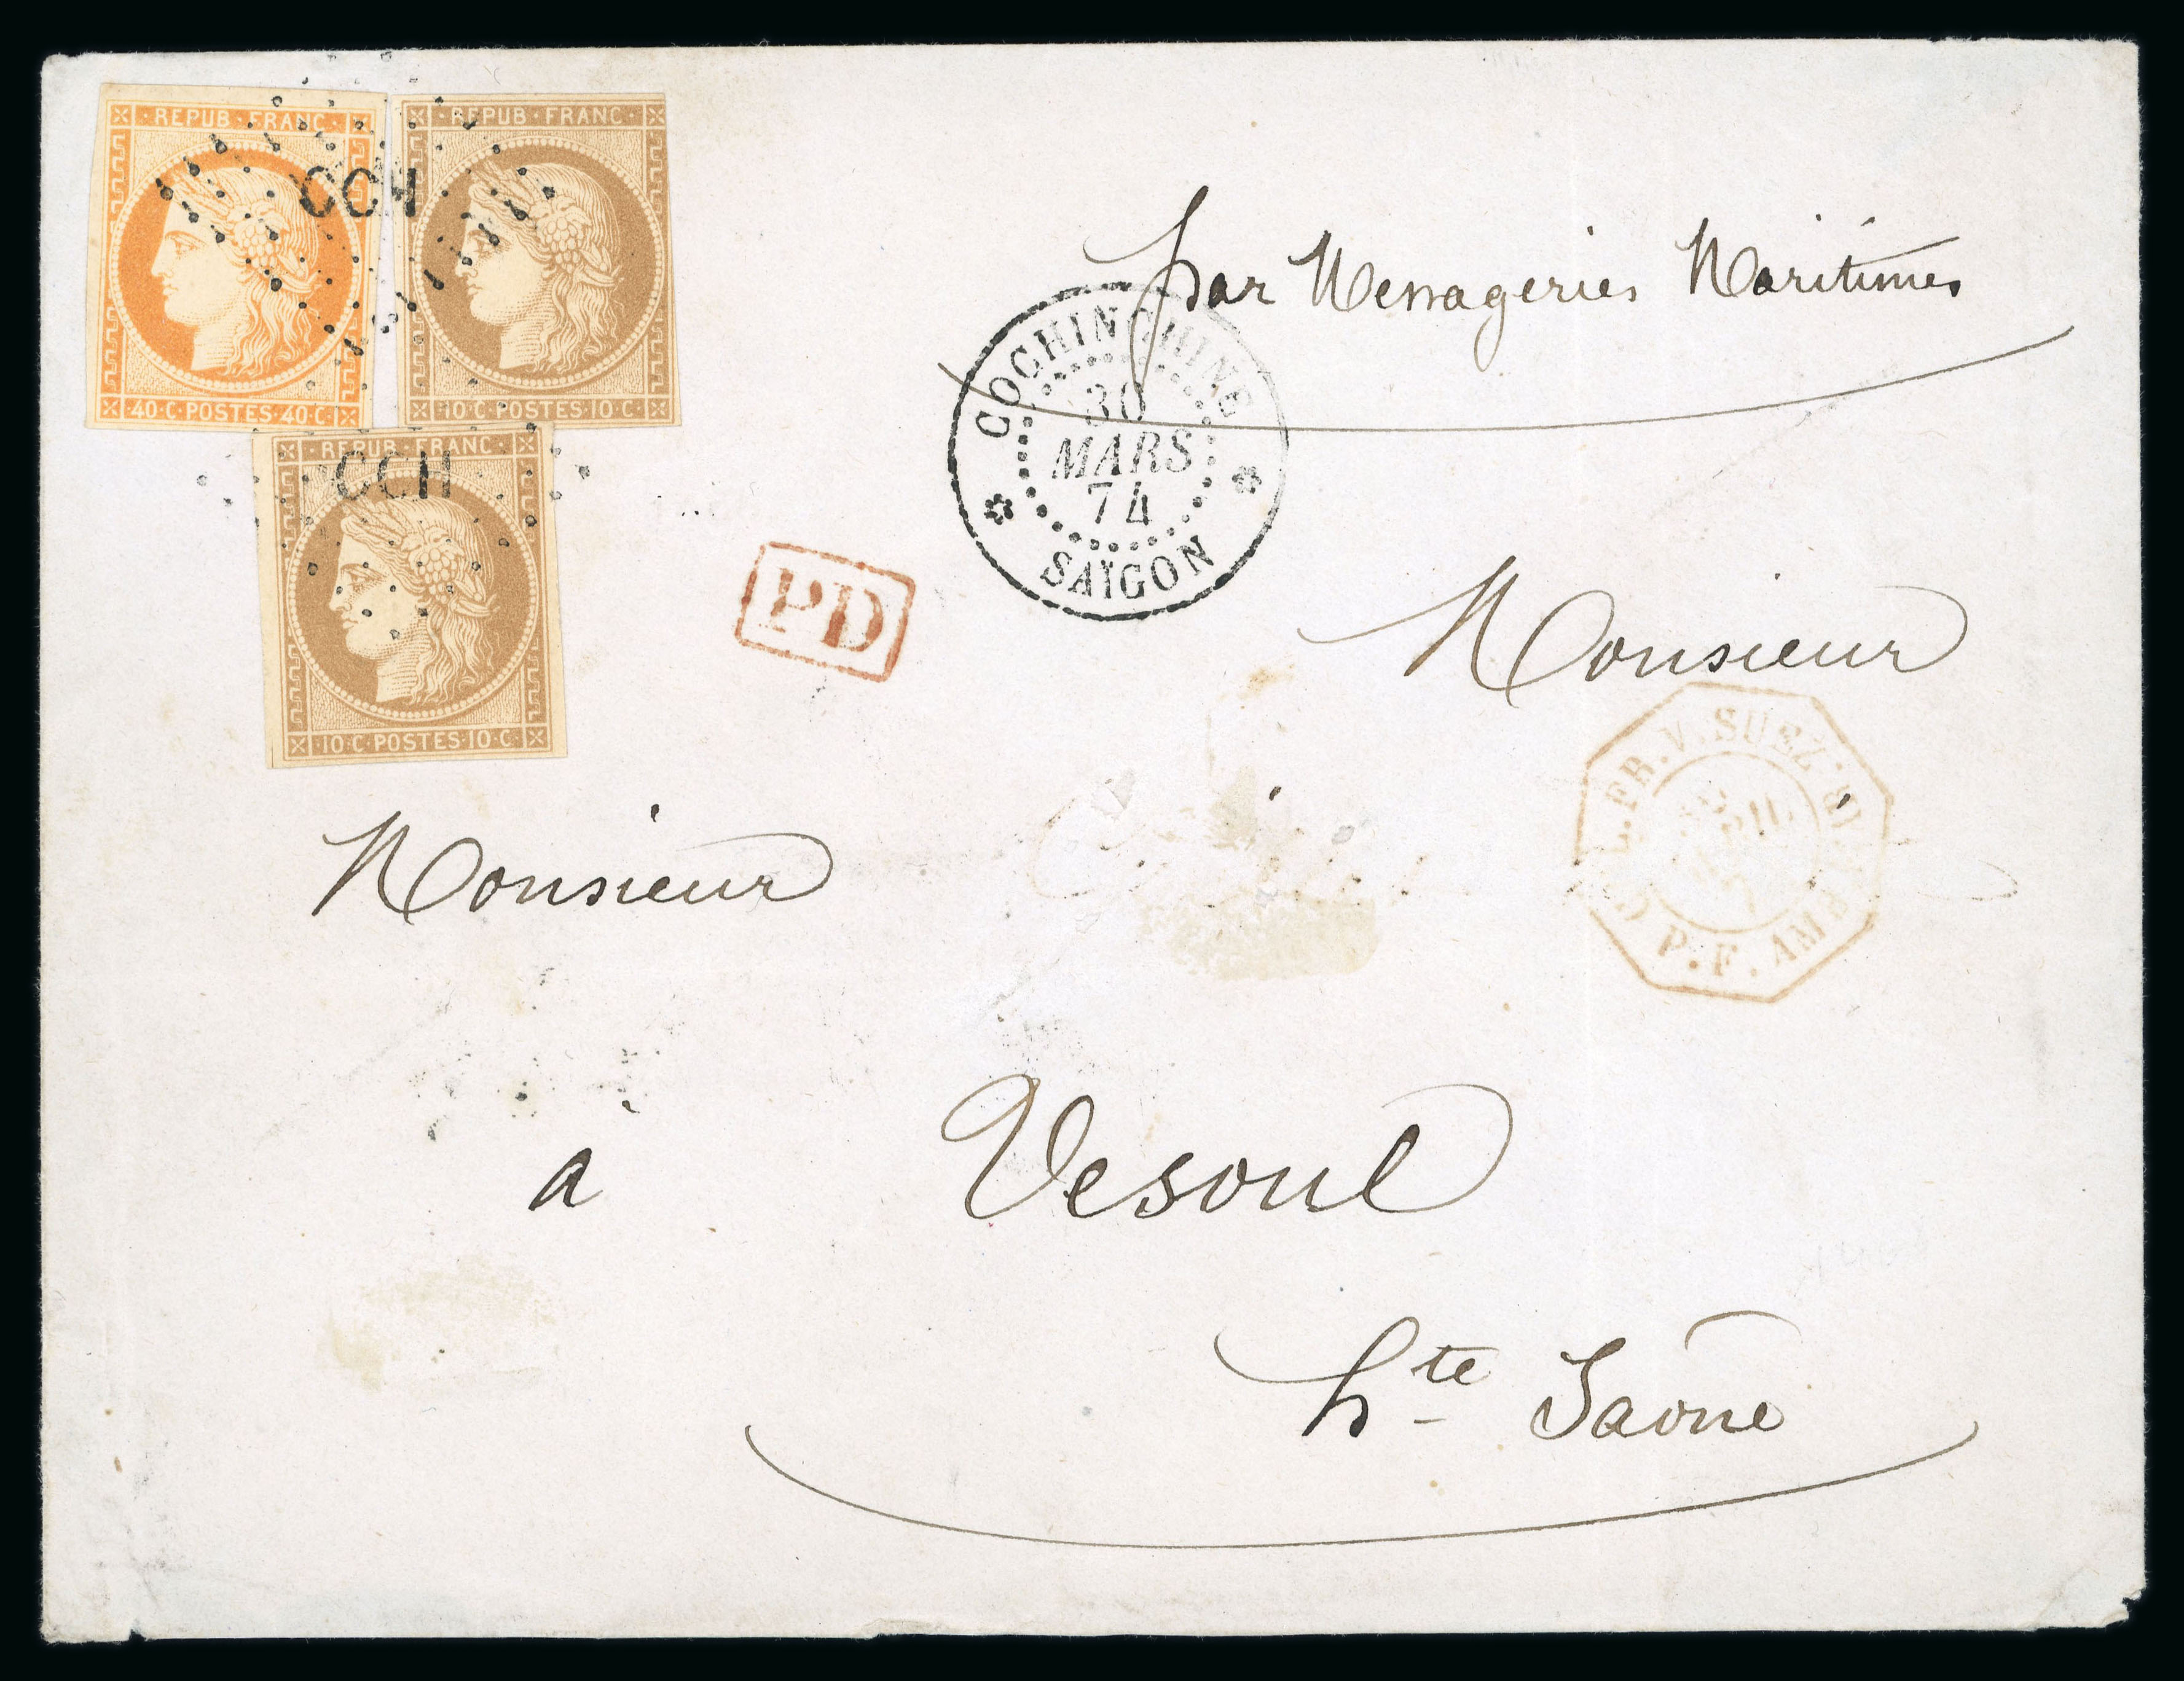 REPUB·FRANC·
40·C·POSTES·40·C·
REPUB·FRANC·
10·C·POSTES·10·C·
CCH
REPUB·FRANC·
10·C·POSTES·10·C·
CCH
par Messageries Maritimes
COCHINCHINE
30
MARS
74
SAÏGON
PD
Monsieur
FR. V. SUEZ
P. F. AMB
Monsieur
a Vesoul
hte Saône